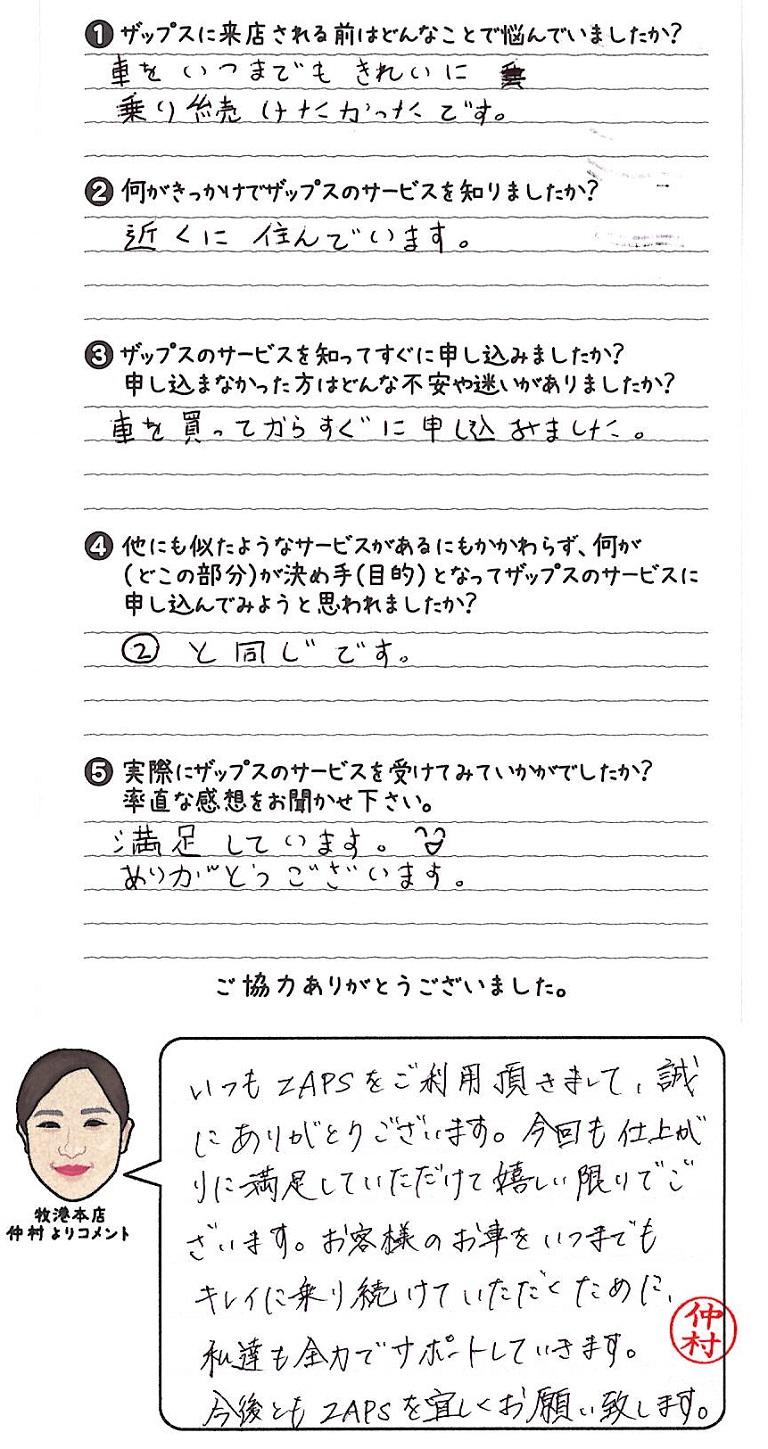 1 ザップスに来店される前はどんなことで悩んでいましたか?
車をいつまでもきれいに
乗り続けたかったです。
2 何がきっかけでザップスのサービスを知りましたか?
近くに住んでいます。
3 ザップスのサービスを知ってすぐに申し込みましたか?
申し込まなかった方はどんな不安や迷いがありましたか?
車を買ってからすぐに申し込みました。
4 他にも似たようなサービスがあるにもかかわらず、何が
(どこの部分)が決め手(目的)となってザップスのサービスに
申し込んでみようと思われましたか?
②と同じです。
5 実際にザップスのサービスを受けてみていかがでしたか?
率直な感想をお聞かせ下さい。
満足しています。
ありがとうございます。
ご協力ありがとうございました。
いつもZAPSをご利用頂きまして、誠
にありがとうございます。今回も仕上が
りに満足していただけて嬉しい限りでご
ざいます。お客様のお車をいつまでも
キレイに乗り続けていただくために、
私達も全力でサポートしていきます。
今後ともZAPSを宜しくお願い致します。
仲村
牧港本店
仲村よりコメント